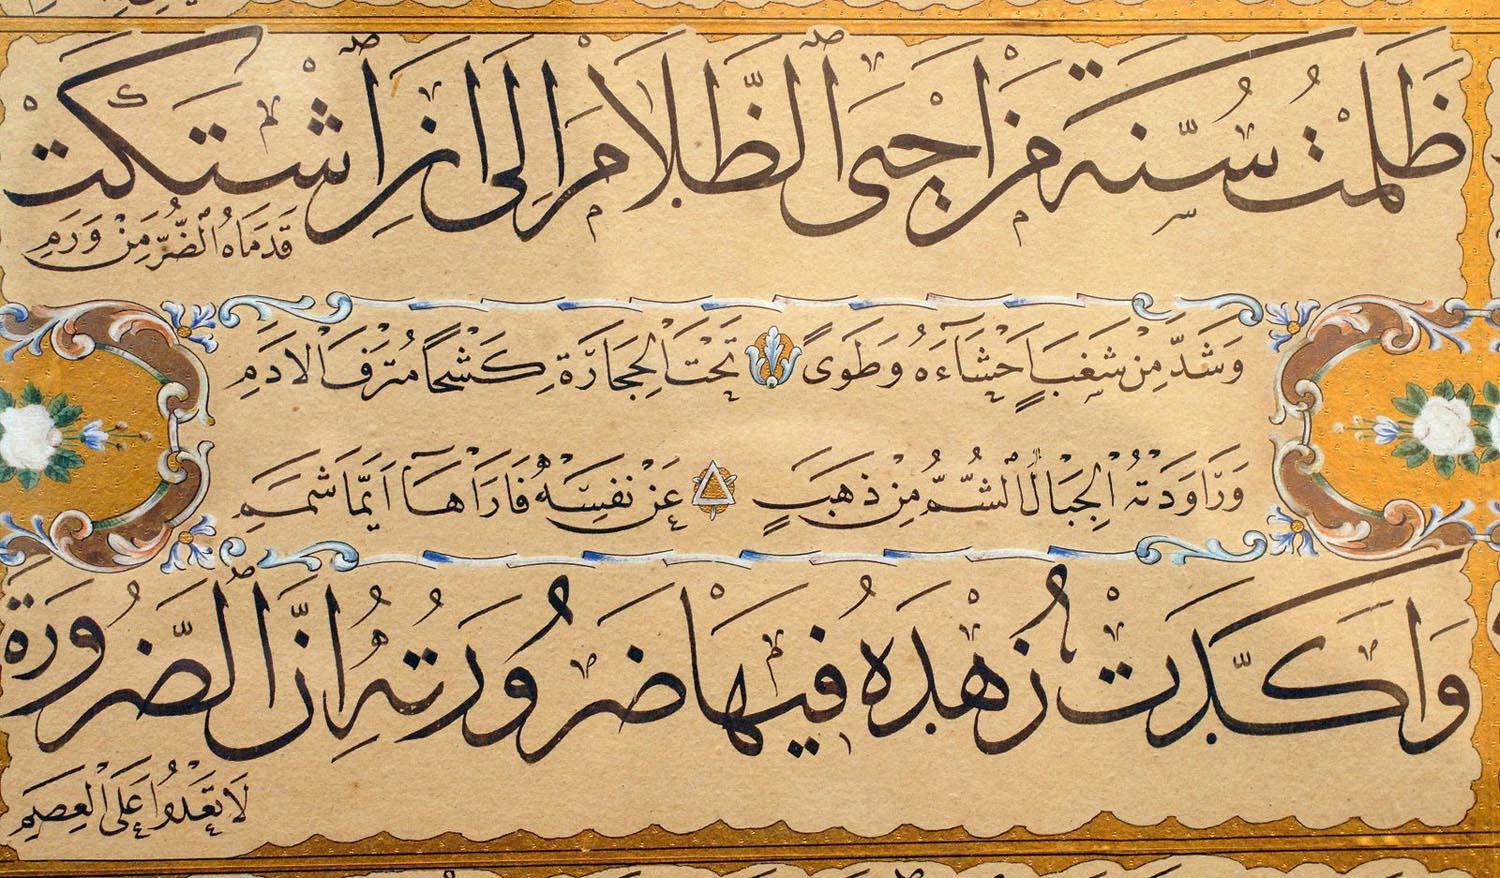 ظَلَمْتُ سُنَّةَ مَنْ اَحْيَى الظَّلَامَ اِلَى اَنِ اشْتَكَتْ
قَدَمَاهُ الضُّرَّ مِنْ وَرَمِ
وَشَدَّ مِنْ شَغَبٍ اَحْشَآءَهُ وَطَوَى تَحْتَ الْحِجَارَةِ كَشْحًا مُتْرَفَ الْاَدَمِ
وَرَاوَدَتْهُ الْجِبَالُ الشُّمُّ مِنْ ذَهَبٍ عَنْ نَفْسِهِ فَاَرَاهَا اَيَّمَا شَمَمِ
وَاَكَّدَتْ زُهْدَهُ فِيهَا ضَرُورَتُهُ اِنَّ الضَّرُورَةَ
لَا تَعْدُوا عَلَى الْعِصَمِ